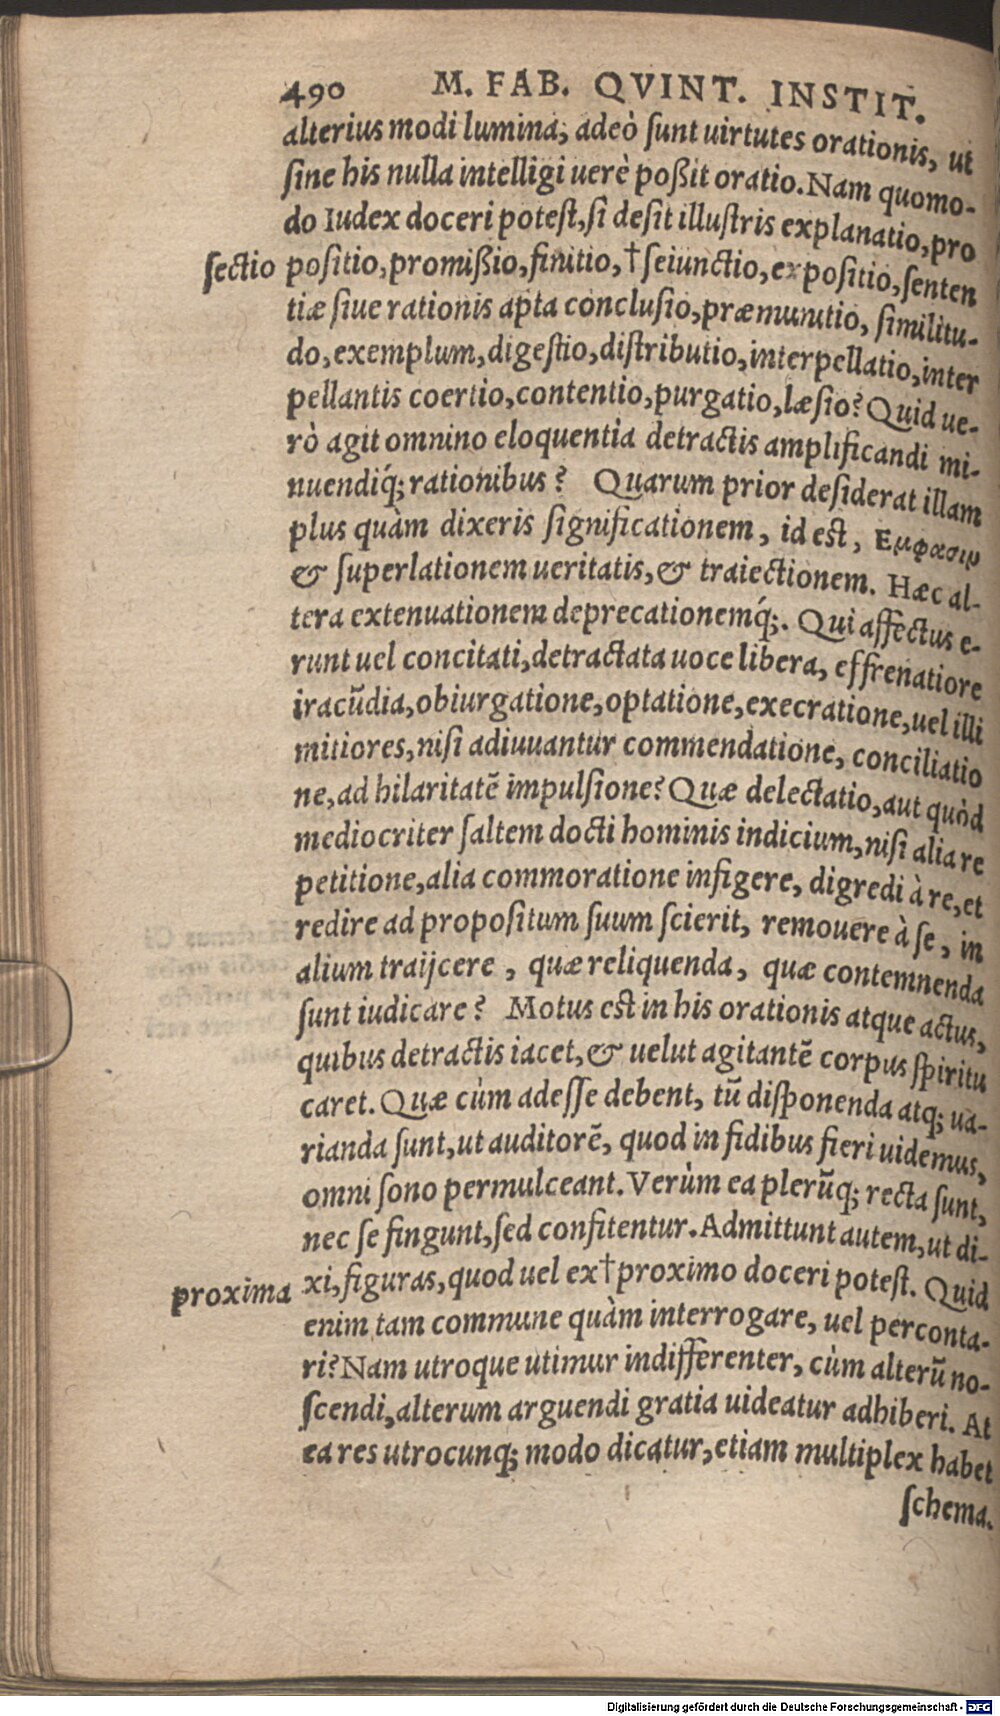 490 M. FAB. QVINT. INSTIT.
alterius modi lumina, adeò ſunt uirtutes orationis, ut
ſine his nulla intelligi uerè poßit oratio. Nam quomo-
do Iudex doceri poteſt, ſi deſit illuſtris explanatio, pro
ſectio
poſitio, promißio, finitio, †ſeiunctio, expoſitio, ſenten
tiæ ſiue rationis apta concluſio, præmunitio, ſimilitu-
do, exemplum, digeſtio, diſtributio, interpellatio, inter
pellantis coertio, contentio, purgatio, læſio? Quid ue-
rò agit omnino eloquentia detractis amplificandi mi-
nuendiq́; rationibus? Quarum prior deſiderat illam
plus quàm dixeris ſignificationem, id eſt, Εμφασιμ
& ſuperlationem ueritatis, & traiectionem. Hæc al-
tera extenuationem deprecationemq́;. Qui affectus e-
runt uel concitati, detractata uoce libera, effrenatiore
iracūdia, obiurgatione, optatione, execratione, uel illi
mitiores, niſi adiuuantur commendatione, conciliatio
ne, ad hilaritatē impulſione? Quæ delectatio, aut quòd
mediocriter ſaltem docti hominis indicium, niſi alia re
petitione, alia commoratione infigere, digredi à re, et
redire ad propoſitum ſuum ſcierit, remouere à ſe, in
alium traijcere, quæ reliquenda, quæ contemnenda
ſunt iudicare? Motus eſt in his orationis atque actus,
quibus detractis iacet, & uelut agitantē corpus ſpiritu
caret. Quæ cùm adeſſe debent, tū diſponenda atq; ua-
rianda ſunt, ut auditorē, quod in fidibus fieri uidemus,
omni ſono permulceant. Verùm ea plerūq; recta ſunt,
nec ſe fingunt, ſed confitentur. Admittunt autem, ut di-
proxima
xi, figuras, quod uel ex †proximo doceri poteſt. Quid
enim tam commune quàm interrogare, uel perconta-
ri? Nam utroque utimur indifferenter, cùm alterū no-
ſcendi, alterum arguendi gratia uideatur adhiberi. At
ea res utrocunq; modo dicatur, etiam multiplex habet
ſchema.
Digitalisierung gefördert durch die Deutsche Forschungsgemeinschaft - DFG